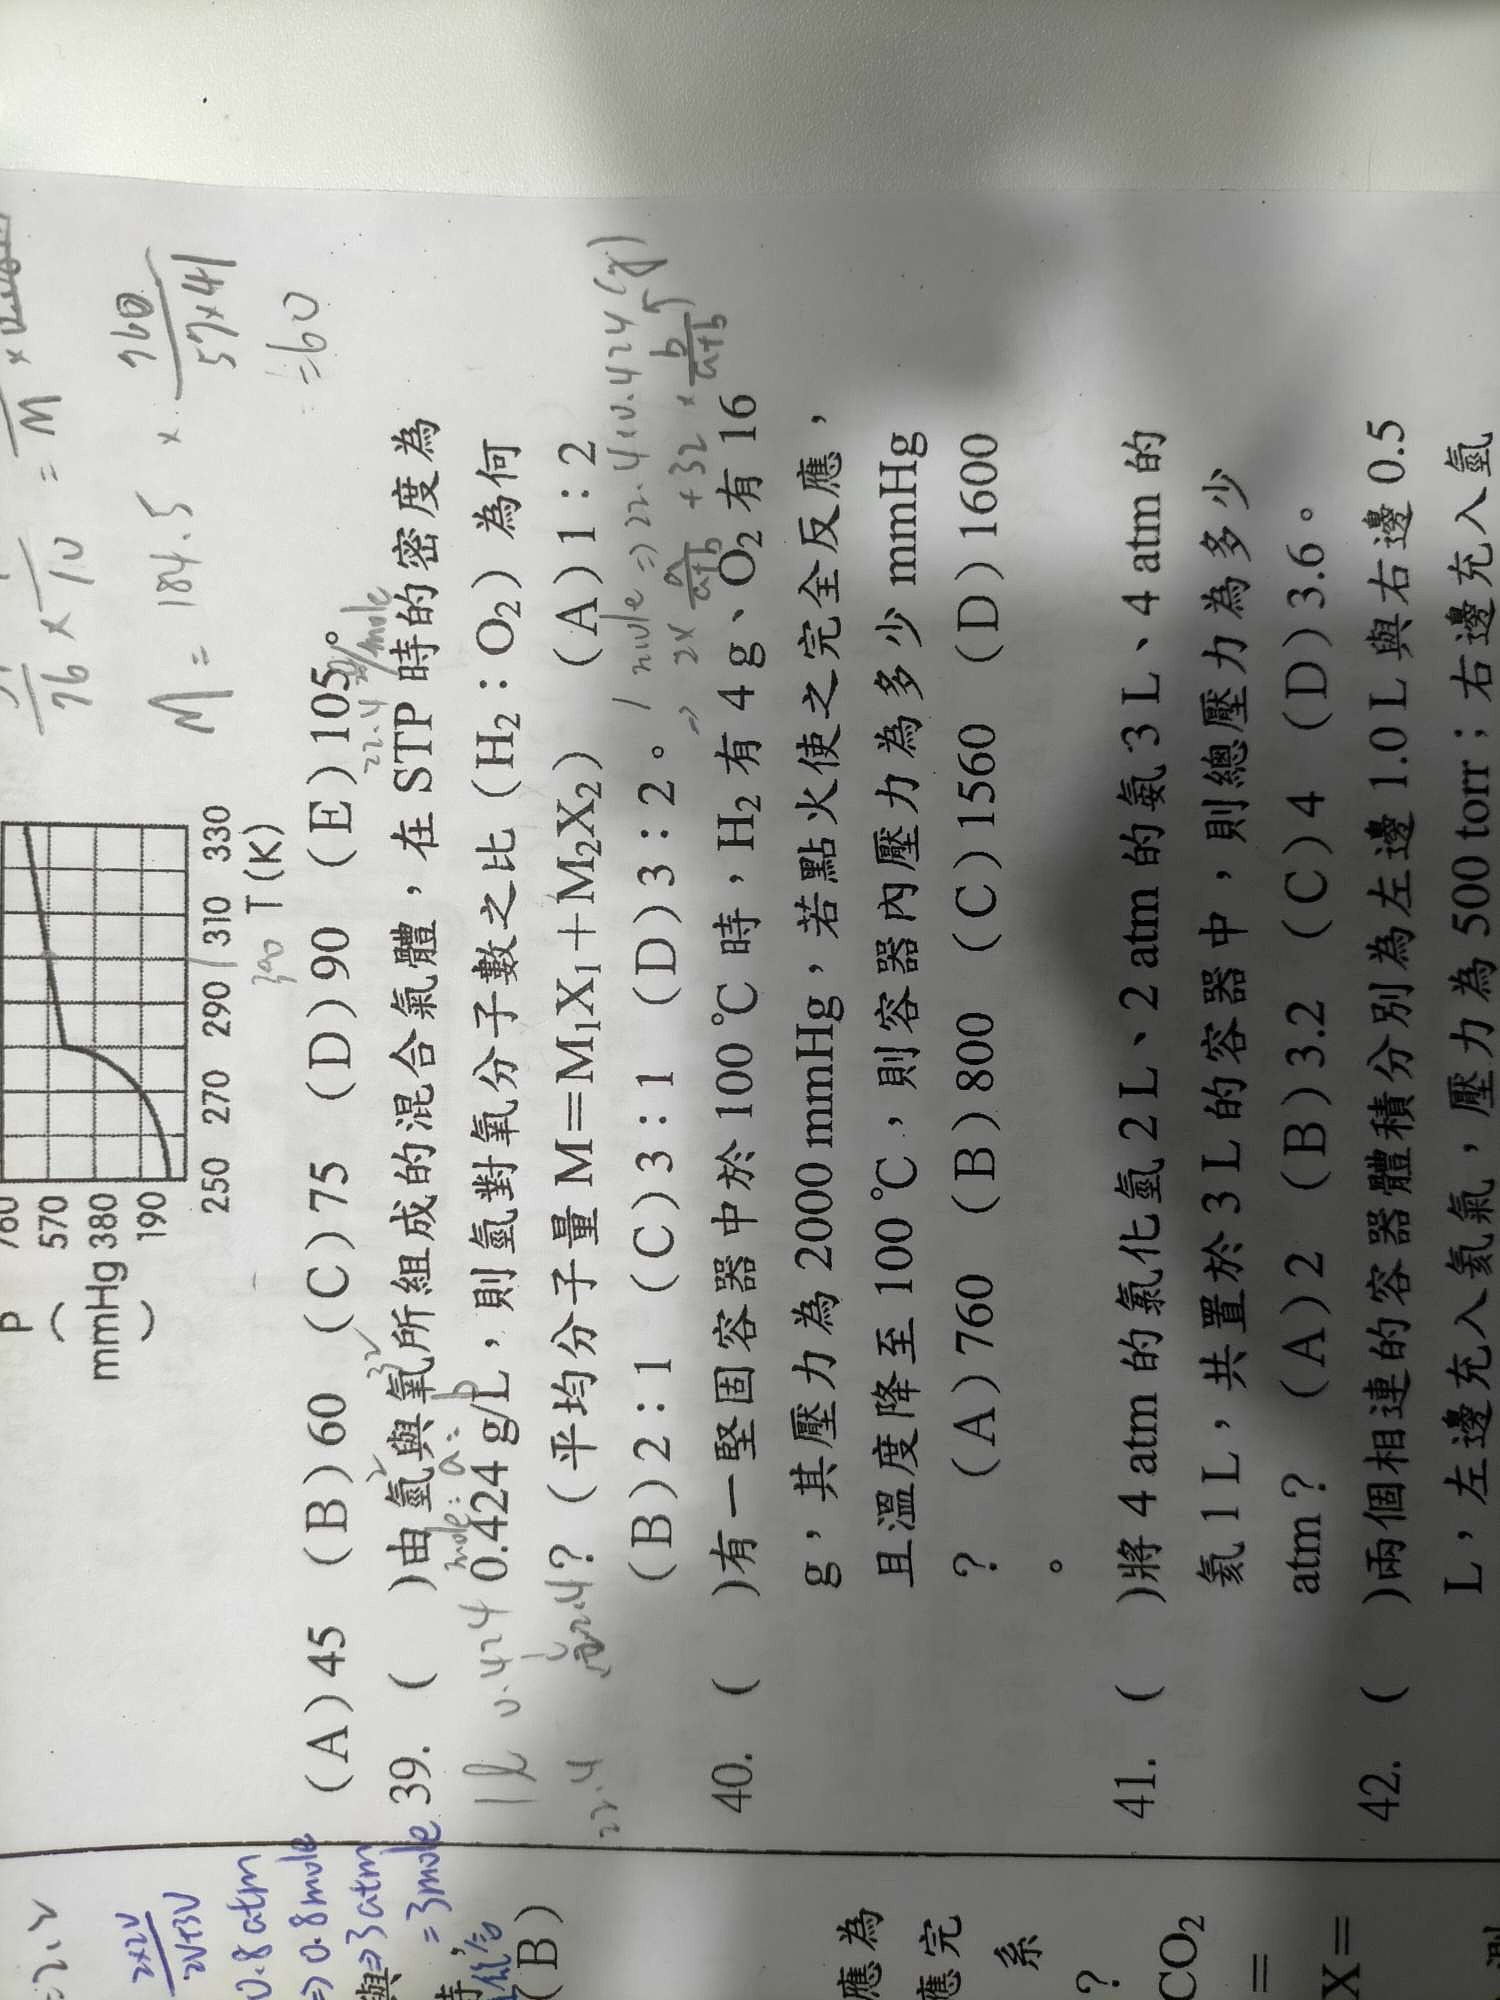 760
570
380
190
P
(mmHg)
250 270 290 310 330
T(K)
300
M = 184.5 × 760/(57×41)
=60
(A)45 (B)60 (C)75 (D)90 (E)105。
39. ( )由氫與氧所組成的混合氣體，在 STP 時的密度為
0.424 g/L，則氫對氧分子數之比（H₂：O₂）為何
？（平均分子量 M＝M₁X₁＋M₂X₂） (A)1：2
(B)2：1 (C)3：1 (D)3：2。
2 32
mole: a: b
22.4 g/mole
1l 0.424
22.4
1 mole ⇒ 22.4×0.424(g)
⇒ 2× a/(a+b) +32 × b/(a+b)
40. ( )有一堅固容器中於 100℃時，H₂ 有 4 g、O₂ 有 16
g，其壓力為 2000 mmHg，若點火使之完全反應，
且溫度降至 100℃，則容器內壓力為多少 mmHg
？ (A)760 (B)800 (C)1560 (D)1600
。
41. ( )將 4 atm 的氯化氫 2 L、2 atm 的氨 3 L、4 atm 的
氦 1 L，共置於 3 L 的容器中，則總壓力為多少
atm？ (A)2 (B)3.2 (C)4 (D)3.6。
42. ( )兩個相連的容器體積分別為左邊 1.0 L 與右邊 0.5
L，左邊充入氦氣，壓力為 500 torr；右邊充入氫
2×2V/2V+3V
0.8 atm
⇒0.8 mole
與⇒3 atm
=3 mole
(B)
應為
應完
系
？
CO₂
＝
X＝